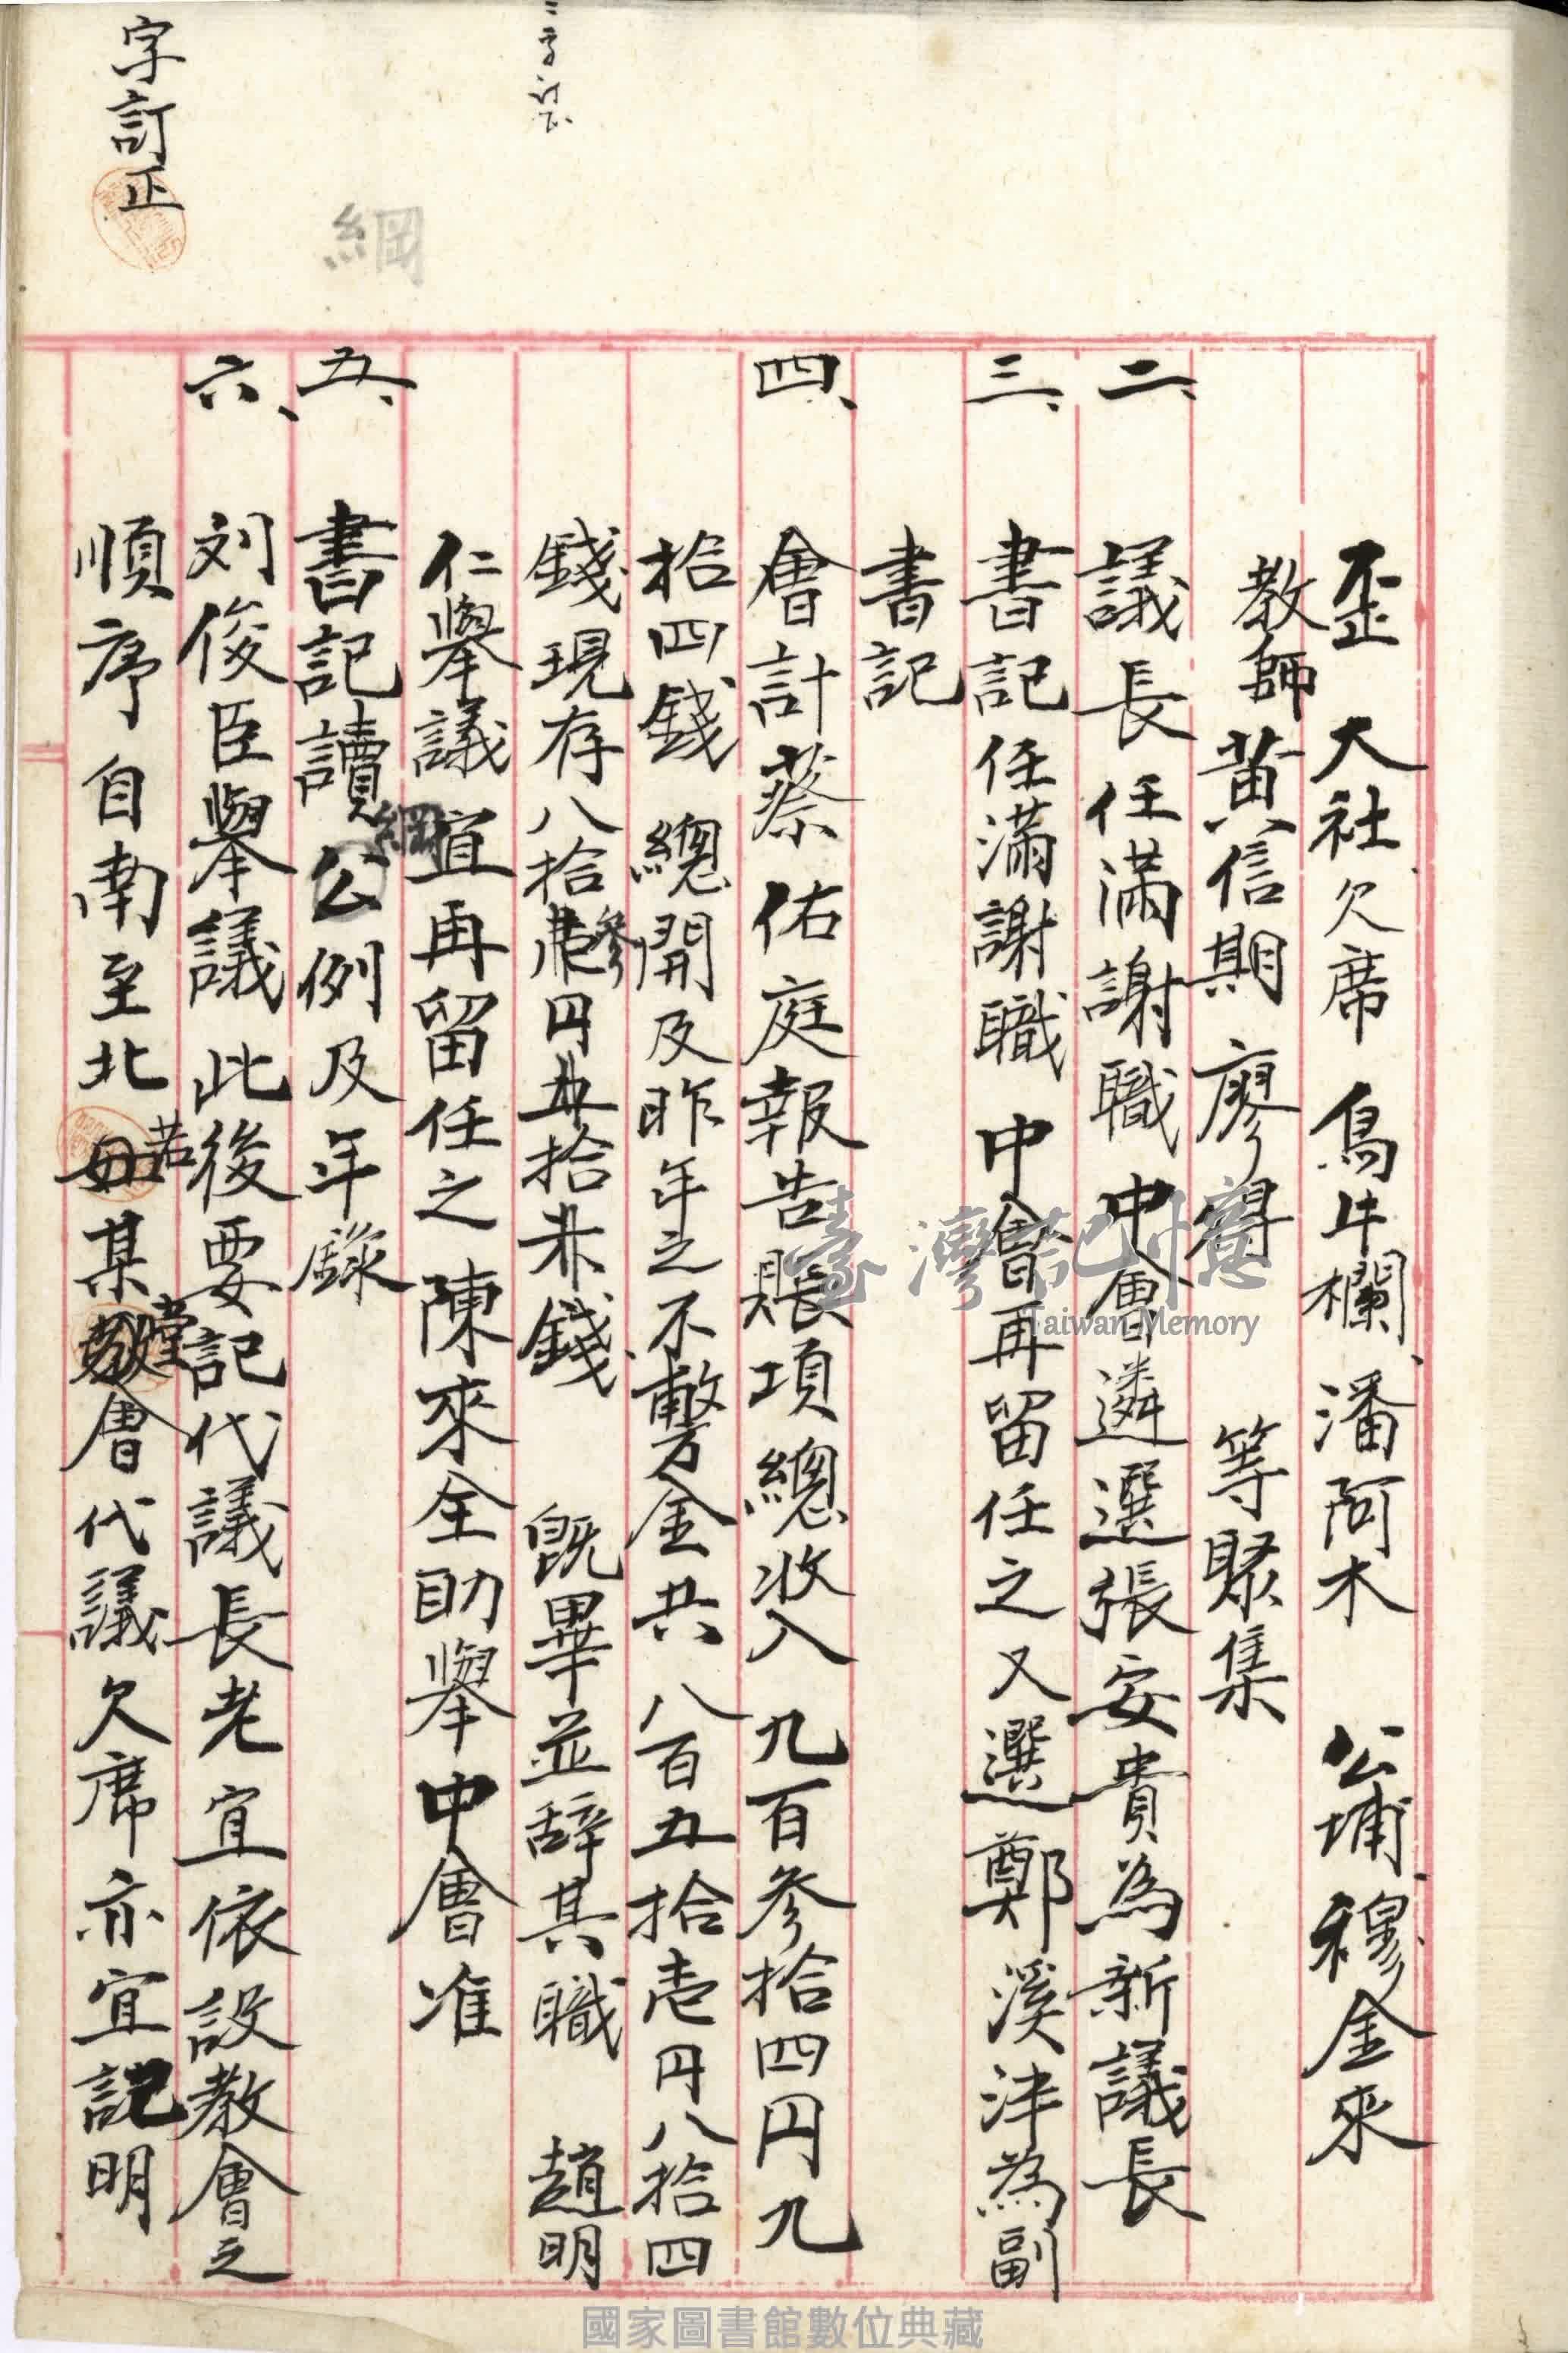 歪　大社、欠席　烏牛欄、潘阿木　公埔、穆金來
教師　黃信期　廖得　等聚集
二、議長任滿謝職　中會遴選張安貴為新議長
三、書記任滿謝職　中會再留任之又選鄭溪泮為副
書記
四、會計蔡佑庭報告賬項總收入　九百參拾四円九
拾四錢、總開及昨年之不敷金共　八百五拾壱円八拾四
錢現存八拾參円拾錢、既畢並辭其職　趙明
仁舉議宜再留任之陳來全助舉中會准
五、書記讀公例及年錄
綱
六、刘俊臣舉議此後要記代議長老宜依設教會之
順序自南至北若某堂會代議欠席亦宜記明
字訂正
綱
臺灣記憶
Taiwan Memory
國家圖書館數位典藏